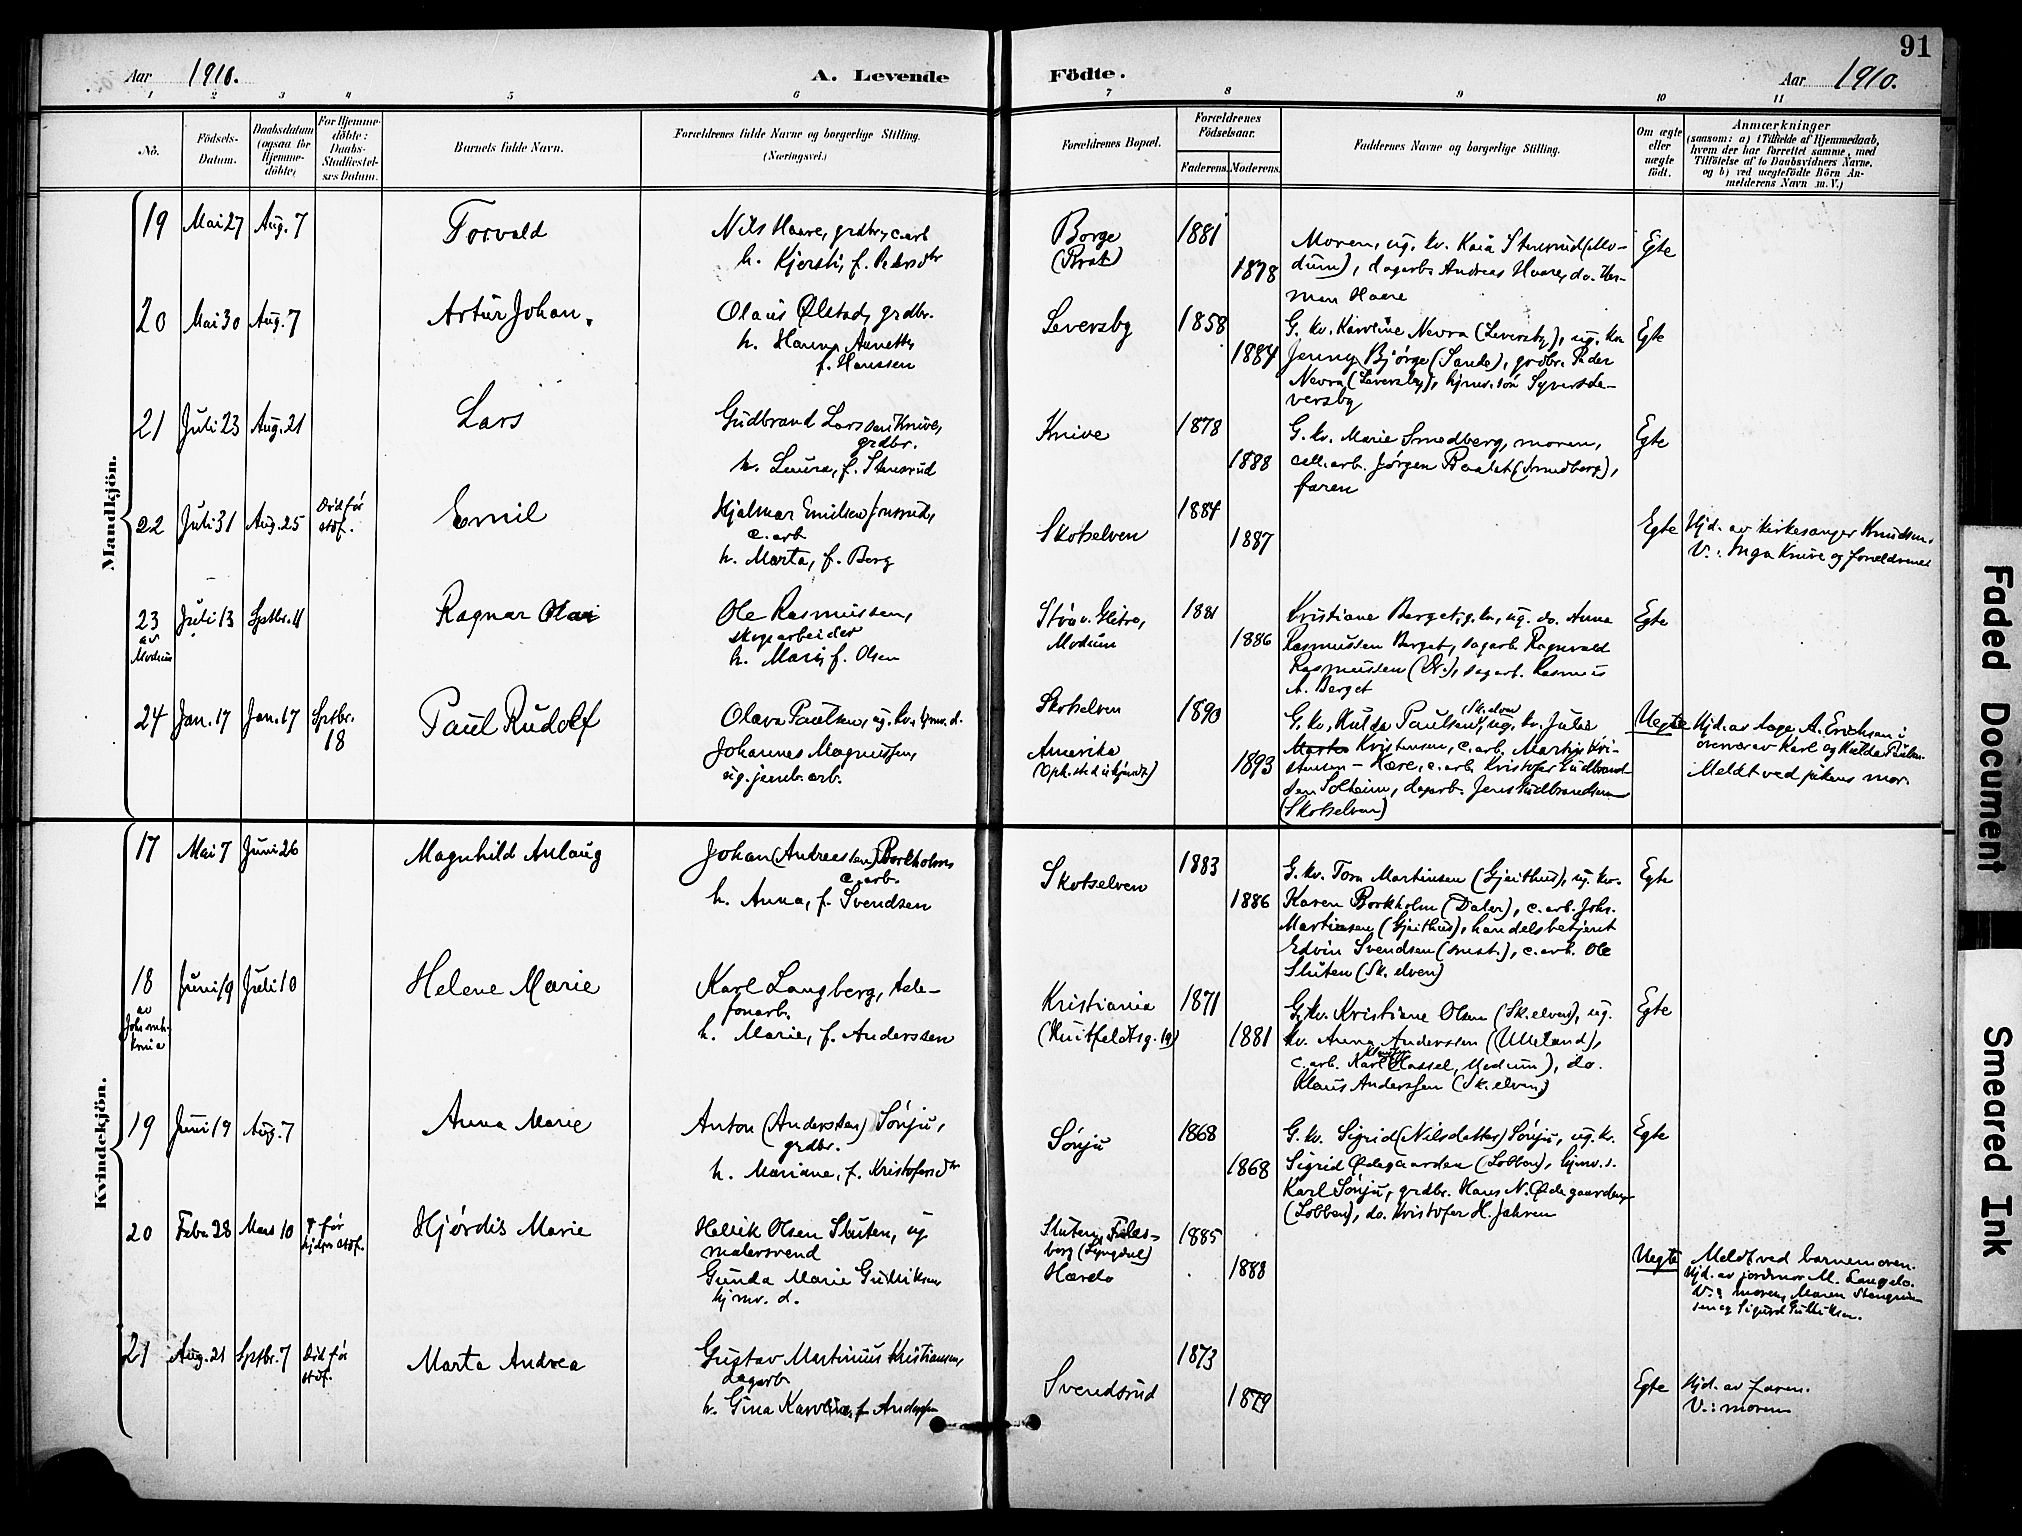 91
Aar 1910. A. Levende Födte. Aar 1910.
1 2 3 4 5 6 7 8 9 10 11
No.
Födsels-
Datum.
Daabsdatum
(ogsaa for
Hjemme-
döbte)
For Hjemme-
döbte:
Daabs-
Stadfæstel-
ses Datum.
Barnets fulde Navn.
Forældrenes fulde Navne og borgerlige Stilling.
(Næringsvei.)
Forældrenes Bopæl.
Forældrenes
Födselsaar.
Faderens. Moderens.
Faddernes Navne og borgerlige Stilling.
Om ægte
eller
uægte
födt.
Anmærkninger
(saasom: a) i Tilfælde af Hjemmedaab,
hvem der har forrettet samme, med
Tilföielse af to Daabsvidners Navne,
og b) ved uægtefödte Börn An-
melderens Navn m. V.)
Mandkjön.
19 Mai 27 Aug. 7 Torvald
Nils Haare, grdbr., c.arb
h. Kjersti, f. Pedersdtr
Borge
1881
1878
Moren, ug. kv. Kaia Stensrud (Mo-
dum), dagarb. Andreas Haare, do. Her-
man Haare
Egte
20 Mai 30 Aug. 7 Artur Johan.
Olaus Ølstad, grdbr.
h. Hanna Annette
f. Hanssen
Leversby
1858
1884
G. kv. Karoline Nevra (Leversby), ug. kv.
Jenny Bjørge (Sande), grdbr. Peder
Nevra (Leversby), hjmv. søn Syver Le-
versby
Egte
21 Juli 23 Aug. 21 Lars
Gudbrand Larssen Knive,
grdbr.
h. Laura, f. Stensrud
Knive
1878
1888
G. kv. Marie Smedberg, moren,
cell. arb. Jørgen (Smedberg),
faren
Egte
22 Juli 31 Aug. 25 Død før
stdf.
Emil
Hjalmar Emilsen
c. arb
h. Marta, f. Berg
Skotselven
1884
1887
Egte
Hjd. av kirkesanger Knudsen.
V.: Inga Knive og forældrene
23
av
Modum
Juli 13 Sptbr. 11 Ragnar Olai
Ole Rasmussen,
skogsarbeider
h. Mari, f. Olsen
Modum
1881
1886
Kristiane Berget, g. kv., ug. do. Anna
Rasmussen Berget, dagarb. Ragnvald
Rasmussen, dagarb. Rasmus
A. Berget
Egte
24 Jan. 17 Jan. 17 Sptbr.
18
Paul Rudolf
Olava Paulsen, ug. kv., hjmv. d.
Johannes Magnussen,
ug. jernb. arb.
Skotselven
Amerika
(Oph.sted ukjendt)
1890
1893
G. kv. Hulda Paulsen, Sk. elven, ug. kv. Julie
Kristensen, c. arb. Martin Kri-
stensen – Hære, c. arb. Kristofer Gudbrand-
sen Solheim, dagarb. Jens Gudbrandsen
(Skotselven)
Uegte
Hjd. av Aage A. Erichsen i
nærvær av Karl og Hulda Paulsen.
Meldt ved pikens mor.
Kvindekjön.
17 Mai 7 Juni 26 Magnhild Aslaug
Johan (Andreassen) Borkholm
c. arb.
h. Anna, f. Svendsen
Skotselven
1883
1886
G. kv. Tora Martinsen (Gjeithus), ug. kv.
Karen Borkholm (Dalen), c. arb. Johs.
Martinsen (Gjeithus), handelsbetjent
Edvin Svendsen (smst.), c. arb. Ole
Sluten (Sk. elven)
Egte
18
av
Juni 19 Juli 10 Helene Marie
Karl Langberg, tele-
fonarb.
h. Marie, f. Anderssen
Kristiania
(Huitfeldtsg. 19)
1871
1881
G. kv. Kristiane Olsen (Sk. elven), ug.
kv. Anna Anderssen (Ulleland),
c. arb. Karl (Hassel, Modum), do.
Klaus Anderssen (Sk. elven)
Egte
19 Juni 19 Aug. 7 Anna Marie
Anton (Anderssen) Sønju,
grdbr.
h. Mariane, f. Kristofersdtr
Sønju
1868
1868
G. kv. Sigrid (Nilsdatter) Sønju, ug. kv.
Sigrid Ødegaarden (Lobben), hjmv. s.
Karl Sønju, grdbr. Hans N. Ødegaarden
(Lobben), do. Kristofer H. Jahren
Egte
20 Febr. 28 Mars 10 † før
kjtn. stdf.
Hjørdis Marie
Hellik Olsen Sluten, ug
malersvend
Gunda Marie Gulliksen
hjmv. d.
Sluten,
(Lyngdal)
1885
1888
Uegte
Meldt ved barnemoren.
Hjd. av jordmor M. Langelo.
V.: moren, Maren
sen og Sigurd Gulliksen.
21 Aug. 21 Sptbr. 7 Død før
stdf.
Marta Andrea
Gustav Martinius Kristiansen,
dagarb.
h. Gina Karoline, f. Anderssen
Svendsrud
1873
1879
Egte
Hjd. av faren.
V.: moren
Faded Document
Smeared Ink